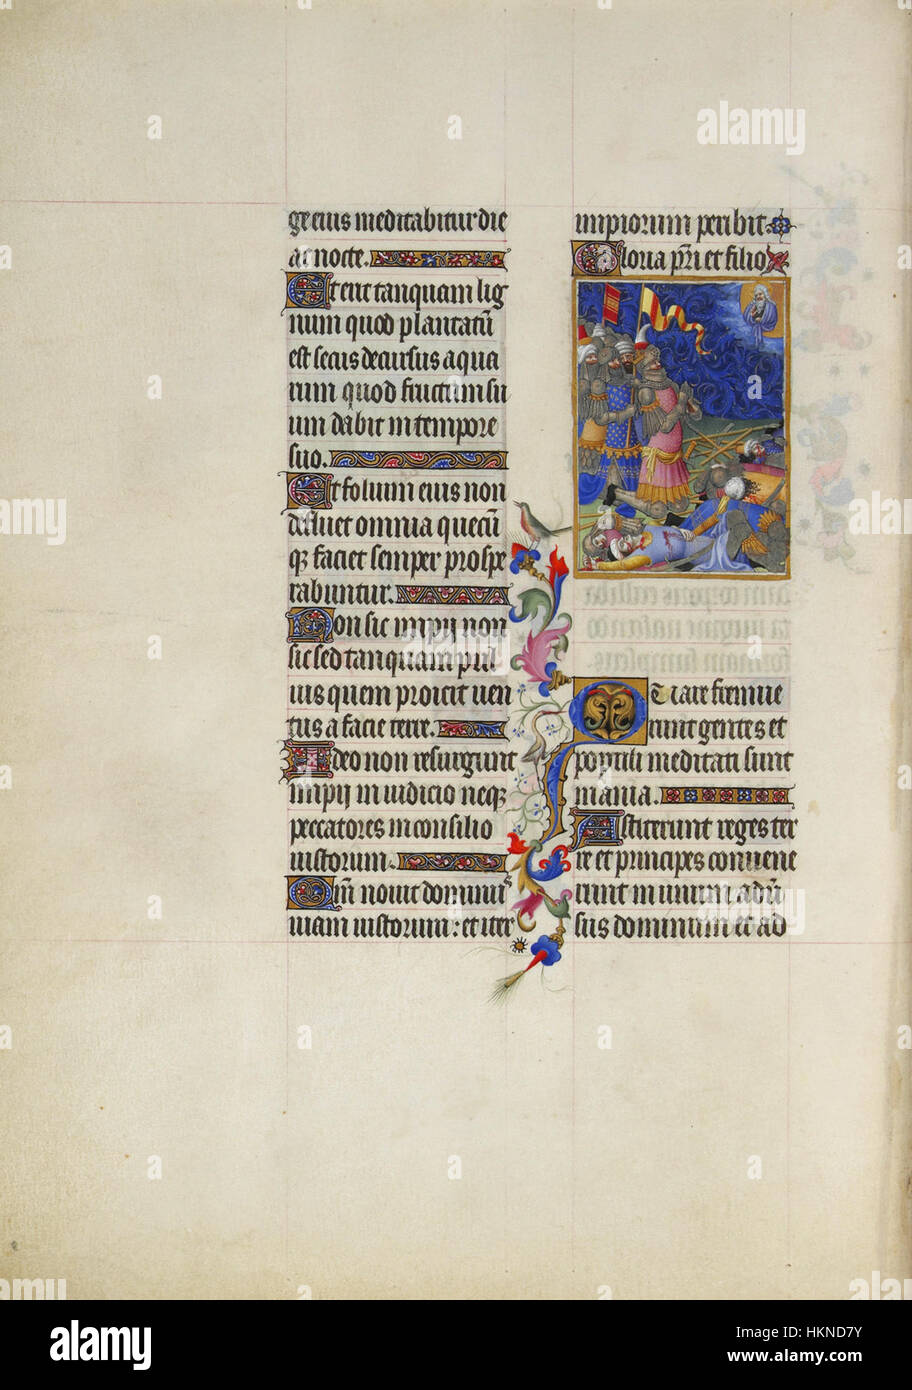 ge eius meditabitur die
ac nocte.
Et erit tanquam lig
num quod plantatū
est secus decursus aqua
rum quod fructum su
um dabit in tempore
suo.
Et folium eius non
defluet omnia quecū
qȝ faciet semper prospe
rabuntur.
Non sic impij non
sic sed tanquam pul
uis quem proicit uen
tus a facie terre.
Ideo non resurgunt
impij in iudicio neqȝ
peccatores in consilio
iustorum.
Qm̄ nouit dominus
uiam iustorum: et iter
impiorum peribit
Gloria pr̄i et filio
Quare fremue
runt gentes et
populi meditati sunt
inania.
Astiterunt reges ter
re et principes conuene
runt in unum adū
sus dominum et ad
alamy
alamy
Image ID: HKND7Y
www.alamy.com